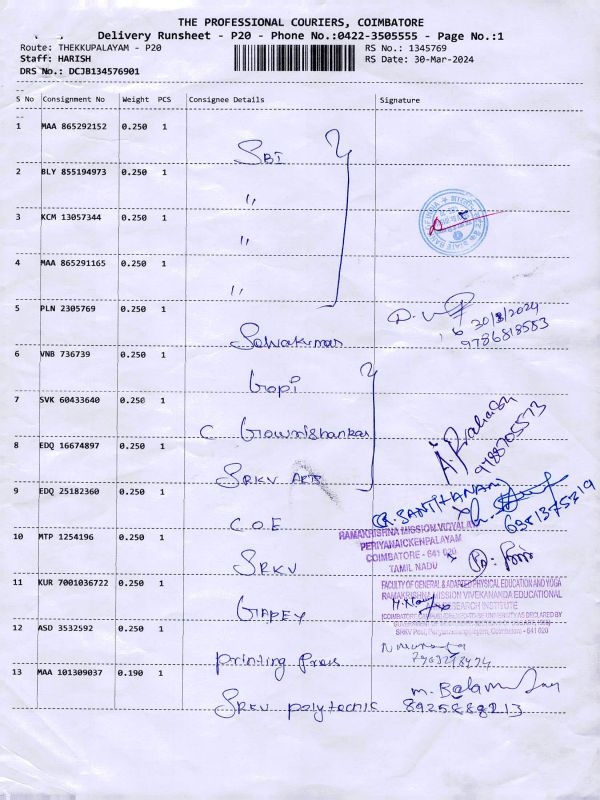 THE PROFESSIONAL COURIERS, COIMBATORE
Delivery Runsheet - P20 - Phone No.:0422-3505555 - Page No.:1
Route: THEKKUPALAYAM - P20 RS No.: 1345769
Staff: HARISH RS Date: 30-Mar-2024
DRS No.: DCJB134576901
S No Consignment No Weight PCS Consignee Details Signature
1 MAA 865292152 0.250 1
SBI
2 BLY 855194973 0.250 1
〃
3 KCM 13057344 0.250 1
〃
4 MAA 865291165 0.250 1
〃
5 PLN 2305769 0.250 1
30/3/2024
9786818583
6 VNB 736739 0.250 1
Gopi
7 SVK 60433640 0.250 1
C Gowrishankar
8 EDQ 16674897 0.250 1
SRKV ARTS
9 EDQ 25182360 0.250 1
C.O.E
(R. SANTHANAM)
6381375319
10 MTP 1254196 0.250 1
SRKV
RAMAKRISHNA MISSION VIDYALAYA
PERIYANAICKENPALAYAM
COIMBATORE - 641 020
TAMIL NADU
11 KUR 7001036722 0.250 1
GAPEY
FACULTY OF GENERAL & ADAPTED PHYSICAL EDUCATION AND YOGA
RAMAKRISHNA MISSION VIVEKANANDA EDUCATIONAL
RESEARCH INSTITUTE
12 ASD 3532592 0.250 1
Printing Press
13 MAA 101309037 0.190 1
SRKV polytechnic
8925888213